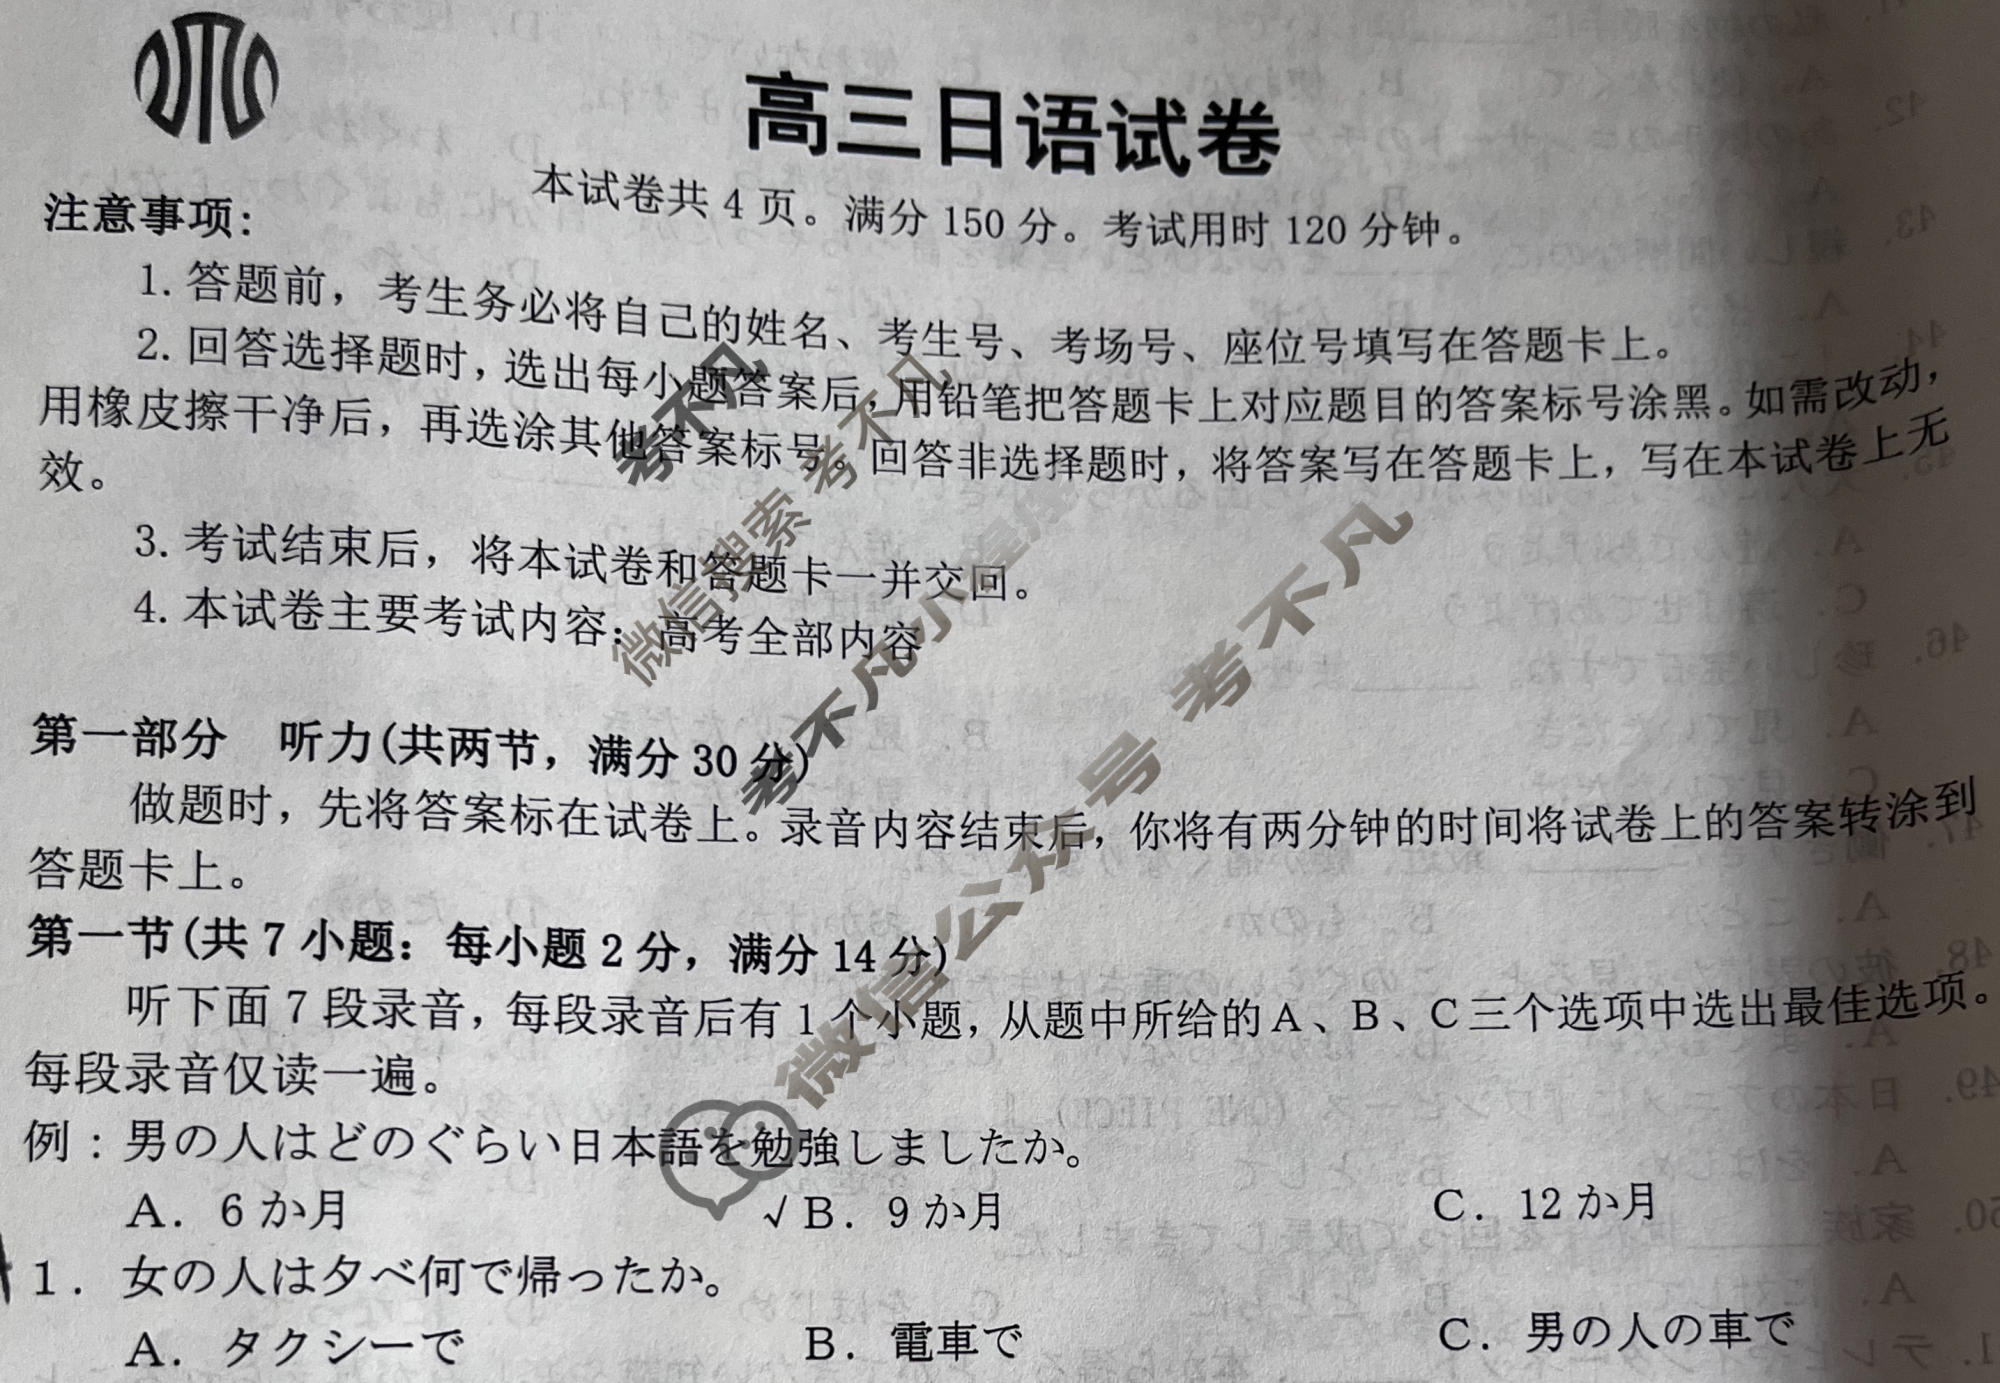 高三日语试卷
本试卷共 4 页。满分 150 分。考试用时 120 分钟。
注意事项：
1. 答题前，考生务必将自己的姓名、考生号、考场号、座位号填写在答题卡上。
2. 回答选择题时，选出每小题答案后，用铅笔把答题卡上对应题目的答案标号涂黑。如需改动，
用橡皮擦干净后，再选涂其他答案标号。回答非选择题时，将答案写在答题卡上，写在本试卷上无
效。
3. 考试结束后，将本试卷和答题卡一并交回。
4. 本试卷主要考试内容：高考全部内容
第一部分　听力(共两节，满分 30 分)
做题时，先将答案标在试卷上。录音内容结束后，你将有两分钟的时间将试卷上的答案转涂到
答题卡上。
第一节(共 7 小题：每小题 2 分，满分 14 分)
听下面 7 段录音，每段录音后有 1 个小题，从题中所给的 A、B、C 三个选项中选出最佳选项。
每段录音仅读一遍。
例：男の人はどのぐらい日本語を勉強しましたか。
A. 6 か月　√B. 9 か月　C. 12 か月
1. 女の人は夕べ何で帰ったか。
A. タクシーで　B. 電車で　C. 男の人の車で
考不凡
微信搜索 考不凡
考不凡小程序
微信公众号 考不凡